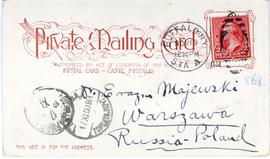 Private Mailing Card
AUTHORIZED BY ACT OF CONGRESS OF MAY
POSTAL CARD – CARTE POSTALE
BUFFALO, N.Y.
12 30 PM
STA. A
568.
Erazm Majewski
Warszawa
Russia-Poland
THIS SIDE IS FOR THE ADDRESS.